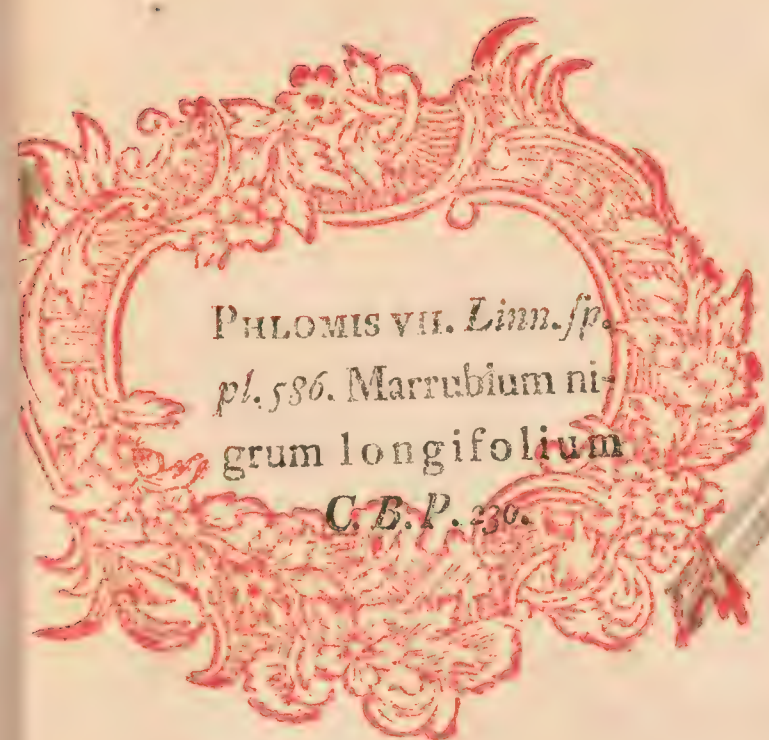 PHLOMIS VII. Linn. ſp.
pl. 586. Marrubium ni-
grum longifolium
C. B. P. 230.